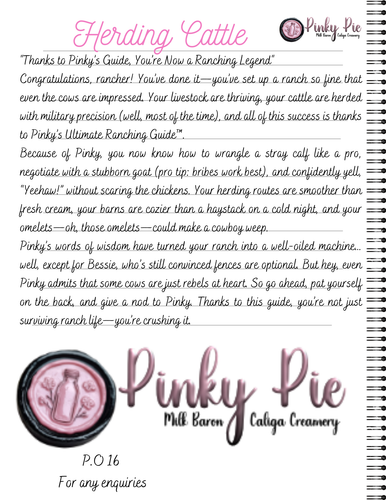 Herding Cattle
Pinky Pie
Milk Baron Caliga Creamery
"Thanks to Pinky's Guide, You're Now a Ranching Legend"
Congratulations, rancher! You've done it—you've set up a ranch so fine that
even the cows are impressed. Your livestock are thriving, your cattle are herded
with military precision (well, most of the time), and all of this success is thanks
to Pinky's Ultimate Ranching Guide™.
Because of Pinky, you now know how to wrangle a stray calf like a pro,
negotiate with a stubborn goat (pro tip: bribes work best), and confidently yell,
"Yeehaw!" without scaring the chickens. Your herding routes are smoother than
fresh cream, your barns are cozier than a haystack on a cold night, and your
omelets—oh, those omelets—could make a cowboy weep.
Pinky's words of wisdom have turned your ranch into a well-oiled machine...
well, except for Bessie, who's still convinced fences are optional. But hey, even
Pinky admits that some cows are just rebels at heart. So go ahead, pat yourself
on the back, and give a nod to Pinky. Thanks to this guide, you're not just
surviving ranch life—you're crushing it.
Pinky Pie
Milk Baron Caliga Creamery
P.O 16
For any enquiries